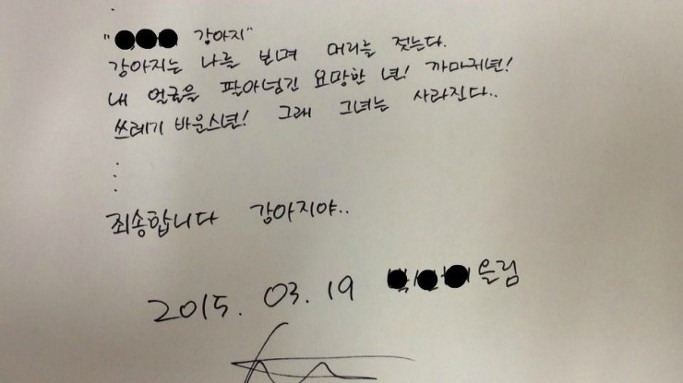 "●●● 강아지"
강아지는 나를 보며 머리를 젓는다.
내 얼굴을 팔아넘긴 요망한 년! 까마귀년!
쓰레기 바운스년! 그래 그녀는 사라진다..
.
.
.
죄송합니다 강아지야..
2015. 03. 19 올림